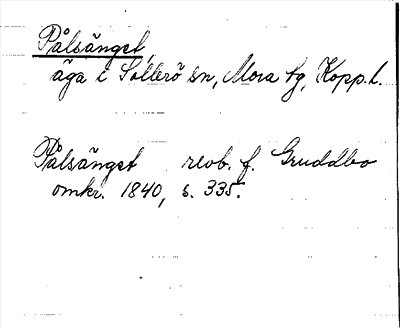 Pålsänget,
äga i Sollerö sn, Mora tg, Kopp. l.
Pålsänget revb. f. Gruddbo
omkr. 1840, s. 335.